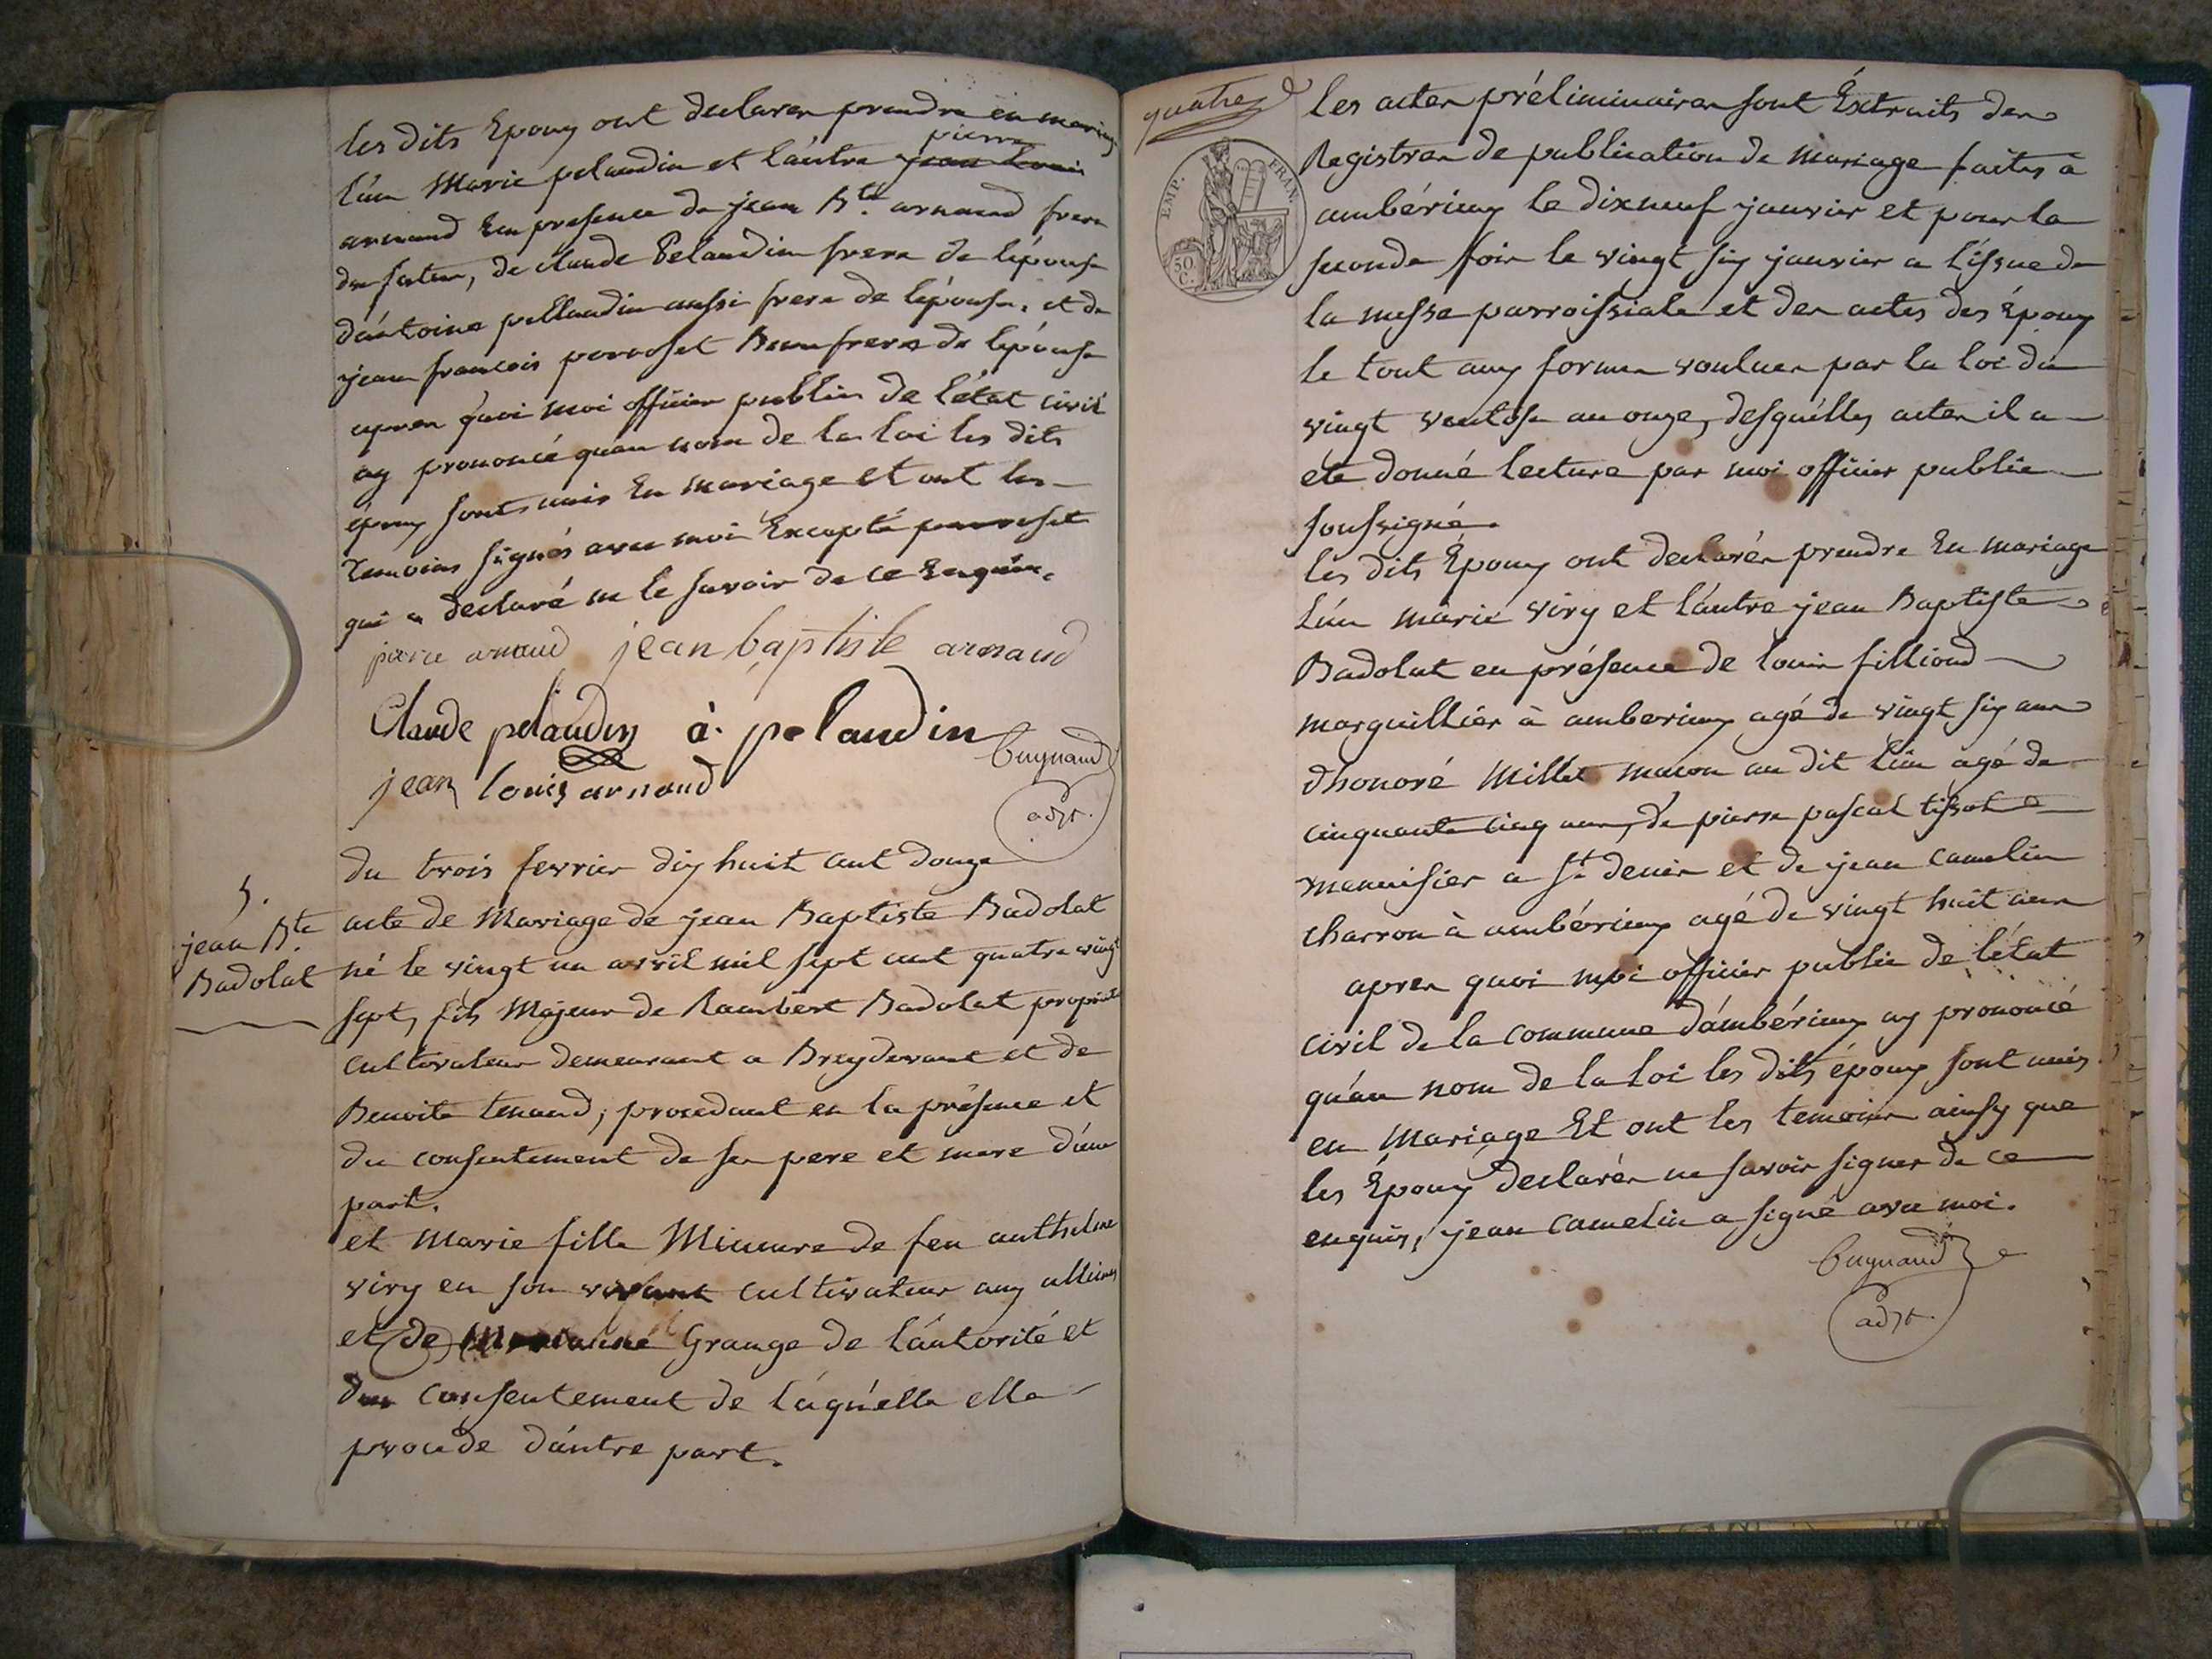 les dits Epoux ont declarer prendre en mariage
pierre
l'un Marie pelaudin et l'autre jean louis
arnaud En presence de jean Bte arnaud frere
du futur, de claude Pelaudin frere de l'épouse
d'antoine pellaudin aussi frere de l'épouse, et de
jean francois perroset Beaufrere de l'épouse
apres quoi moi officier public de l'état civil
ay prononcé qu'au nom de la loi les dits
époux sont unis En mariage et ont les
Temoins signés avec moi Excepté perroset
qui a declaré ne le savoir de ce Enquis.
pierre arnaud jean baptiste arnaud
Claude pelaudin à. pelaudin
jean louis arnaud
Cugnaud
adjt.
5.
jean Bte
Badolat
du trois fevrier dix huit cent douze
acte de Mariage de jean Baptiste Badolat
né le vingt un avril mil sept cent quatre vingt
sept, fils Majeur de Rambert Badolat propriet
cultivateur demeurant a Breydevant et de
Benoite tenand, procedant en la présence et
du consentement de ses pere et mere d'une
part.
et Marie fille Mineure de feu anthelme
viry en son vivant cultivateur aux allimes
et de Marianne Grange de l'autorité et
du consentement de laquelle elle
procede d'autre part.
quatre
EMP. FRAN.
50 C.
les actes préliminaires sont Extraits des
Registres de publication de mariage faites à
ambérieux le dixneuf janvier et pour la
seconde fois le vingt six janvier a l'issue de
la messe parroissiale et des actes des Époux
le tout aux formes voulues par la loi du
vingt ventose an onze, desquelles actes il a
ete donné lecture par moi officier public
soussigné.
les dits Époux ont declarés prendre En mariage
l'un marie viry et l'autre jean Baptiste
Badolat en présence de louis filliond
marguillier à amberieux agé de vingt six ans
d'honoré Millet macon au dit lieu agé de
cinquante cinq ans, de pierre pascal tissot
menuisier a St denis et de jean Camelin
charron à ambérieux agé de vingt huit ans
apres quoi moi officier public de l'état
civil de la commune d'ambérieux ay prononcé
qu'au nom de la loi les dits époux sont unis
en Mariage Et ont les temoins ainsy que
les Époux declarés ne savoir signer de ce
enquis, jean Camelin a signé avec moi.
Cugnaud
adjt.